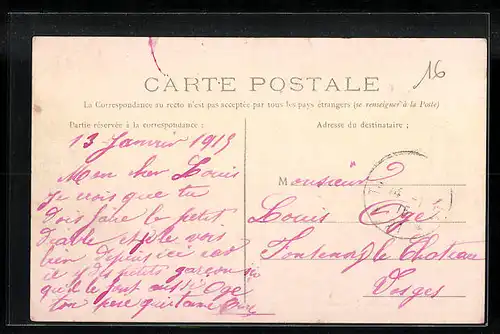 16
CARTE POSTALE
La Correspondance au recto n'est pas acceptée par tous les pays étrangers (se renseigner à la Poste)
Partie réservée à la correspondance :
Adresse du destinataire ;
13 Janvier 1915
Mon cher Louis
Je crois que tu
dois faire le petit
diable et je le vois
bien depuis ici car
il y des petits garçon
qui le font aussi
ton père qui t'aime Ogé
Monsieur
Louis Ogé
Fontenoy le Chateau
Vosges